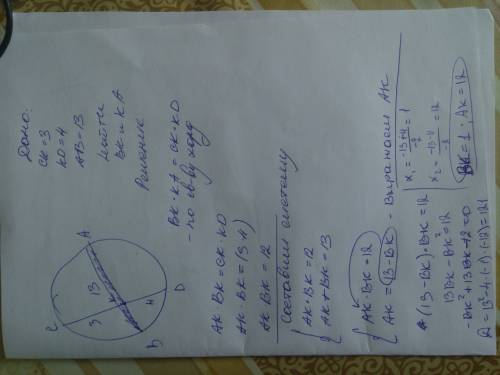 Дано:
CK = 3
KD = 4
AB = 13
Найти
BK и KA
Решение
C
A
13
3
K
4
B
D
BK · KA = CK · KD
- по св-ву хорд
AK · BK = CK · KD
AK · BK = (3·4)
AK · BK = 12
Составим систему
{ AK · BK = 12
AK + BK = 13
{ AK · BK = 12
AK = (13 - BK) - Выражаем AK
(13 - BK) · BK = 12
13BK - BK² = 12
-BK² + 13BK - 12 = 0
D = 13² - 4·(-1)·(-12) = 121
x₁ = -13+11/-2 = 1
x₂ = -13-11/-2 = 12
BK = 1; AK = 12